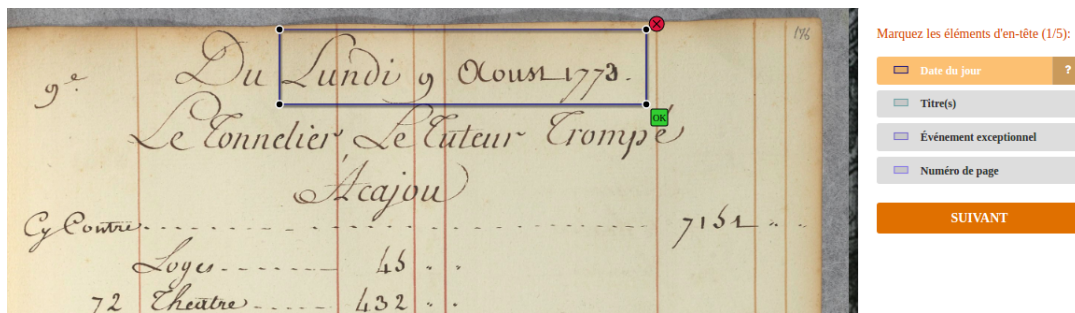 176
9.e Du Lundi 9 Aoust 1773.
Le Tonnelier Le Tuteur Trompé
Acajou
Cy Contre 7151 " "
Loges 45 " "
72 Theatre 432 " "
OK
Marquez les éléments d'en-tête (1/5):
Date du jour ?
Titre(s)
Événement exceptionnel
Numéro de page
SUIVANT